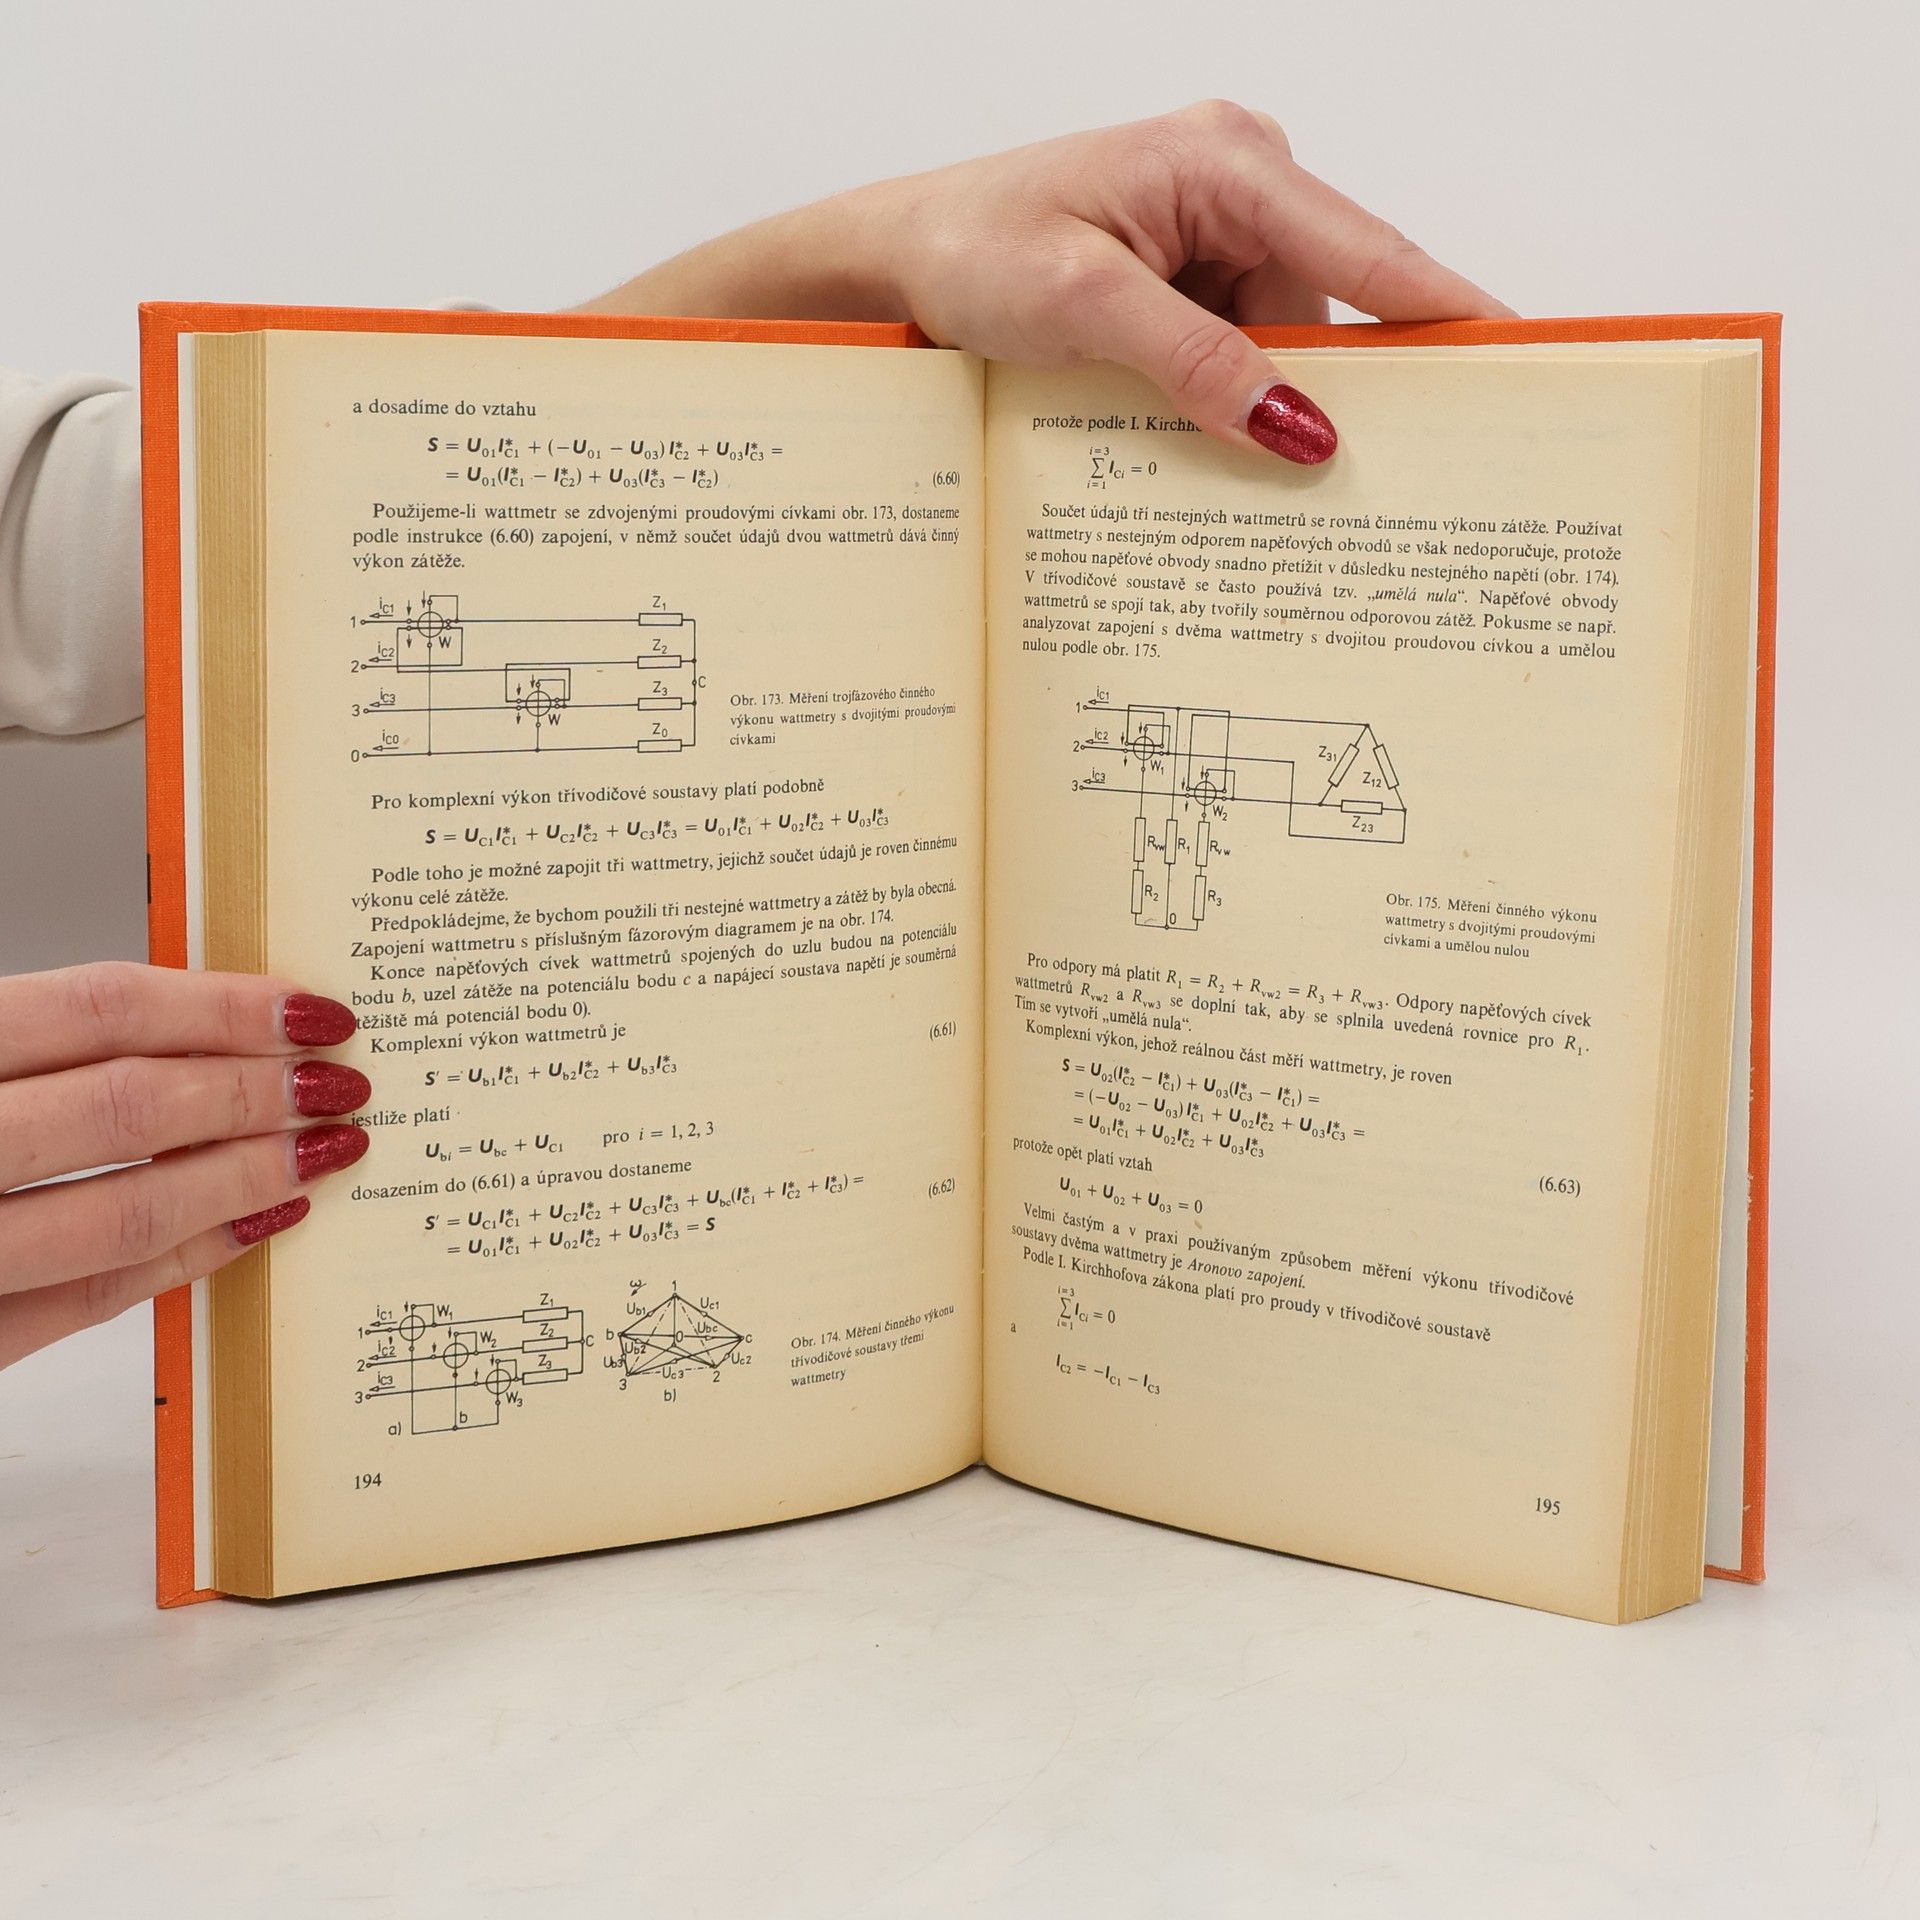 a dosadíme do vztahu
S = U₀₁I*C1 + (−U₀₁ − U₀₃) I*C2 + U₀₃I*C3 =
= U₀₁(I*C1 − I*C2) + U₀₃(I*C3 − I*C2) (6.60)
Použijeme-li wattmetr se zdvojenými proudovými cívkami obr. 173, dostaneme
podle instrukce (6.60) zapojení, v němž součet údajů dvou wattmetrů dává činný
výkon zátěže.
1 iC1 W Z₁
2 iC2 Z₂
C
3 iC3 W Z₃
0 iC0 Z₀
Obr. 173. Měření trojfázového činného
výkonu wattmetry s dvojitými proudovými
cívkami
Pro komplexní výkon třívodičové soustavy platí podobně
S = UC1I*C1 + UC2I*C2 + UC3I*C3 = U₀₁I*C1 + U₀₂I*C2 + U₀₃I*C3
Podle toho je možné zapojit tři wattmetry, jejichž součet údajů je roven činnému
výkonu celé zátěže.
Předpokládejme, že bychom použili tři nestejné wattmetry a zátěž by byla obecná.
Zapojení wattmetru s příslušným fázorovým diagramem je na obr. 174.
Konce napěťových cívek wattmetrů spojených do uzlu budou na potenciálu
bodu b, uzel zátěže na potenciálu bodu c a napájecí soustava napětí je souměrná
těžiště má potenciál bodu 0).
Komplexní výkon wattmetrů je (6.61)
S′ = Ub1I*C1 + Ub2I*C2 + Ub3I*C3
jestliže platí
Ubi = Ubc + UC1 pro i = 1, 2, 3
dosazením do (6.61) a úpravou dostaneme
S′ = UC1I*C1 + UC2I*C2 + UC3I*C3 + Ubc(I*C1 + I*C2 + I*C3) = (6.62)
= U₀₁I*C1 + U₀₂I*C2 + U₀₃I*C3 = S
1 iC1 W₁ Z₁
2 iC2 W₂ Z₂ C
3 iC3 W₃ Z₃
a) b
ω 1
Ub1 Uc1
b 0 Ubc c
Ub2
Ub3 Uc3 Uc2
3 2
b)
Obr. 174. Měření činného výkonu
třívodičové soustavy třemi
wattmetry
194
protože podle I. Kirchho
i=3
∑ ICi = 0
i=1
Součet údajů tří nestejných wattmetrů se rovná činnému výkonu zátěže. Používat
wattmetry s nestejným odporem napěťových obvodů se však nedoporučuje, protože
se mohou napěťové obvody snadno přetížit v důsledku nestejného napětí (obr. 174).
V třívodičové soustavě se často používá tzv. „umělá nula“. Napěťové obvody
wattmetrů se spojí tak, aby tvořily souměrnou odporovou zátěž. Pokusme se např.
analyzovat zapojení s dvěma wattmetry s dvojitou proudovou cívkou a umělou
nulou podle obr. 175.
1 iC1
2 iC2 W₁ Z₃₁ Z₁₂
3 iC3 W₂
Z₂₃
Rvw R₁ Rvw
R₂ R₃
0
Obr. 175. Měření činného výkonu
wattmetry s dvojitými proudovými
cívkami a umělou nulou
Pro odpory má platit R₁ = R₂ + Rvw2 = R₃ + Rvw3. Odpory napěťových cívek
wattmetrů Rvw2 a Rvw3 se doplní tak, aby se splnila uvedená rovnice pro R₁.
Tím se vytvoří „umělá nula“.
Komplexní výkon, jehož reálnou část měří wattmetry, je roven
S = U₀₂(I*C2 − I*C1) + U₀₃(I*C3 − I*C1) =
= (−U₀₂ − U₀₃) I*C1 + U₀₂I*C2 + U₀₃I*C3 =
= U₀₁I*C1 + U₀₂I*C2 + U₀₃I*C3
protože opět platí vztah (6.63)
U₀₁ + U₀₂ + U₀₃ = 0
Velmi častým a v praxi používaným způsobem měření výkonu třívodičové
soustavy dvěma wattmetry je Aronovo zapojení.
Podle I. Kirchhofova zákona platí pro proudy v třívodičové soustavě
i=3
∑ ICi = 0
i=1
a
IC2 = −IC1 − IC3
195